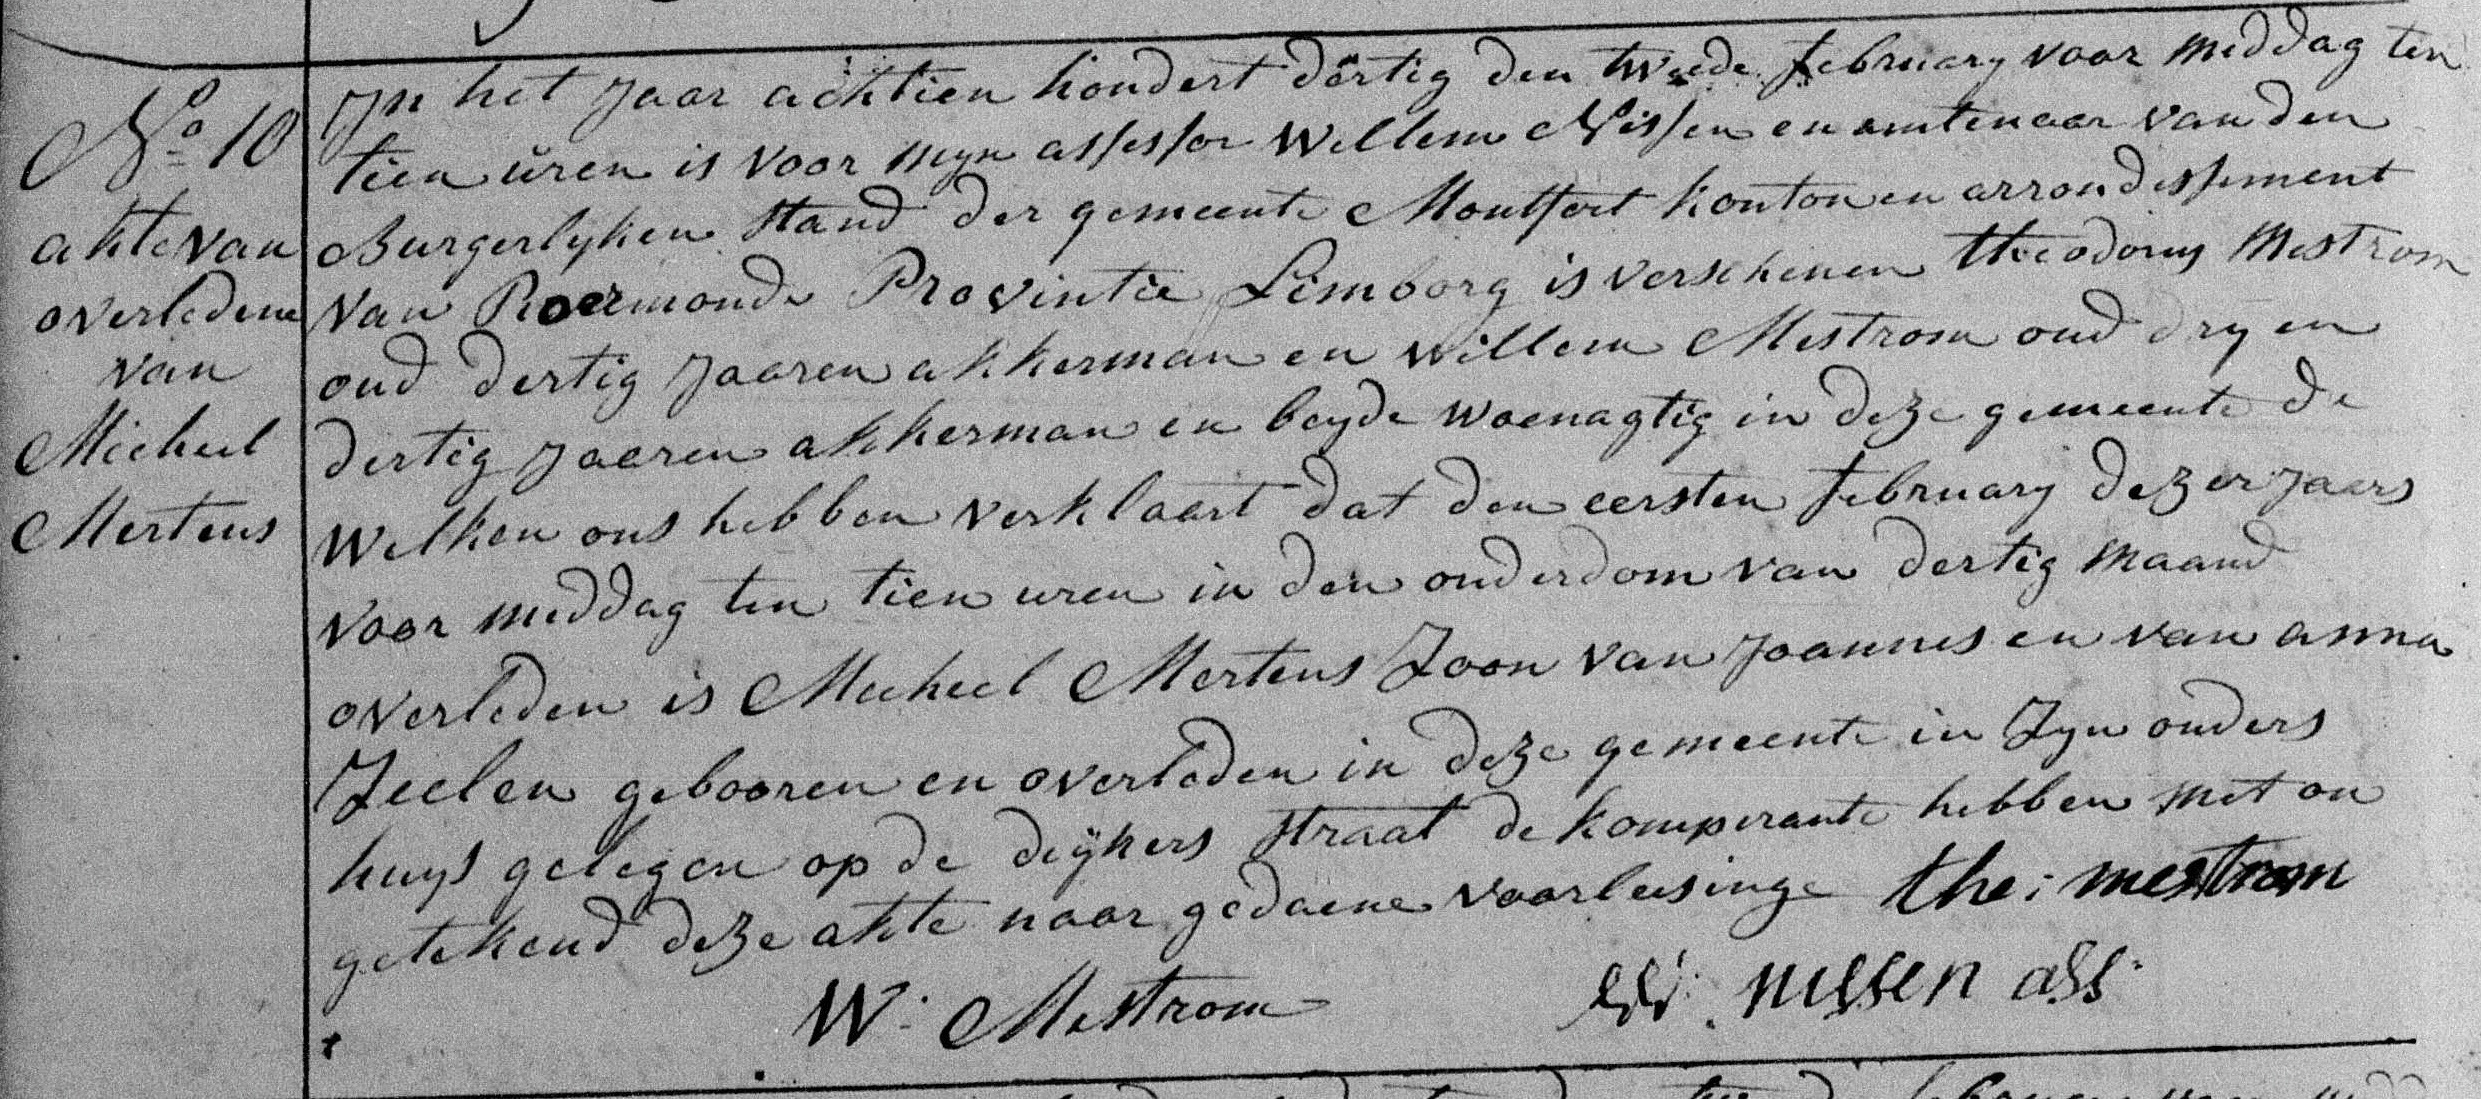 No 10
akte van
overledene
van
Micheel
Mertens
Jn het Jaar achtien hondert dörtig den twede february voor middag ten
tien uren is voor myn assessor Willem Nissen en amtenaar van den
Burgerlyken stand der gemeente Montfort konton en arrondissement
van Roermonde Provintie Limborg is verschenen theodorus Mestrom
oud dertig Jaaren akkerman en willem Mestrom oud dry en
dertig Jaaren akkerman en beyde woenagtig in deze gemeente de
Welken ons hebben verklaart dat den eersten february dezer jaars
voor middag ten tien uren in den onderdom van dertig maand
overleden is Micheel Mertens Zoon van Joannes en van anna
Zeelen gebooren en overleden in deze gemeente in Zyn ouders
huys gelegen op de deÿkers straat de komperante hebben met on
getekend deze akte naar gedaene voorleesinge the: mestrom
W. Mestrom nissen ass.